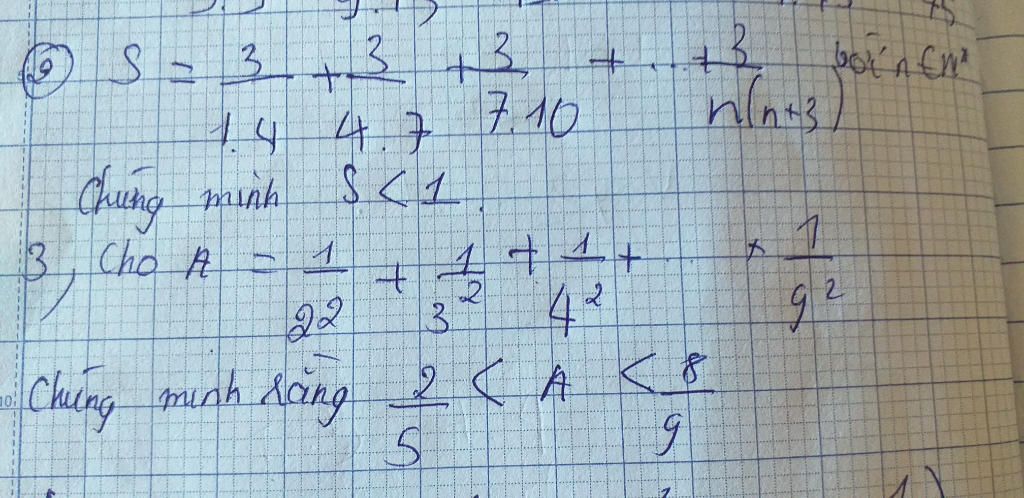 ② S = 3/1.4 + 3/4.7 + 3/7.10 + ... + 3/n(n+3) với n ∈ N*
Chứng minh S < 1.
3, Cho A = 1/2² + 1/3² + 1/4² + ... + 1/9²
Chứng minh rằng 2/5 < A < 8/9